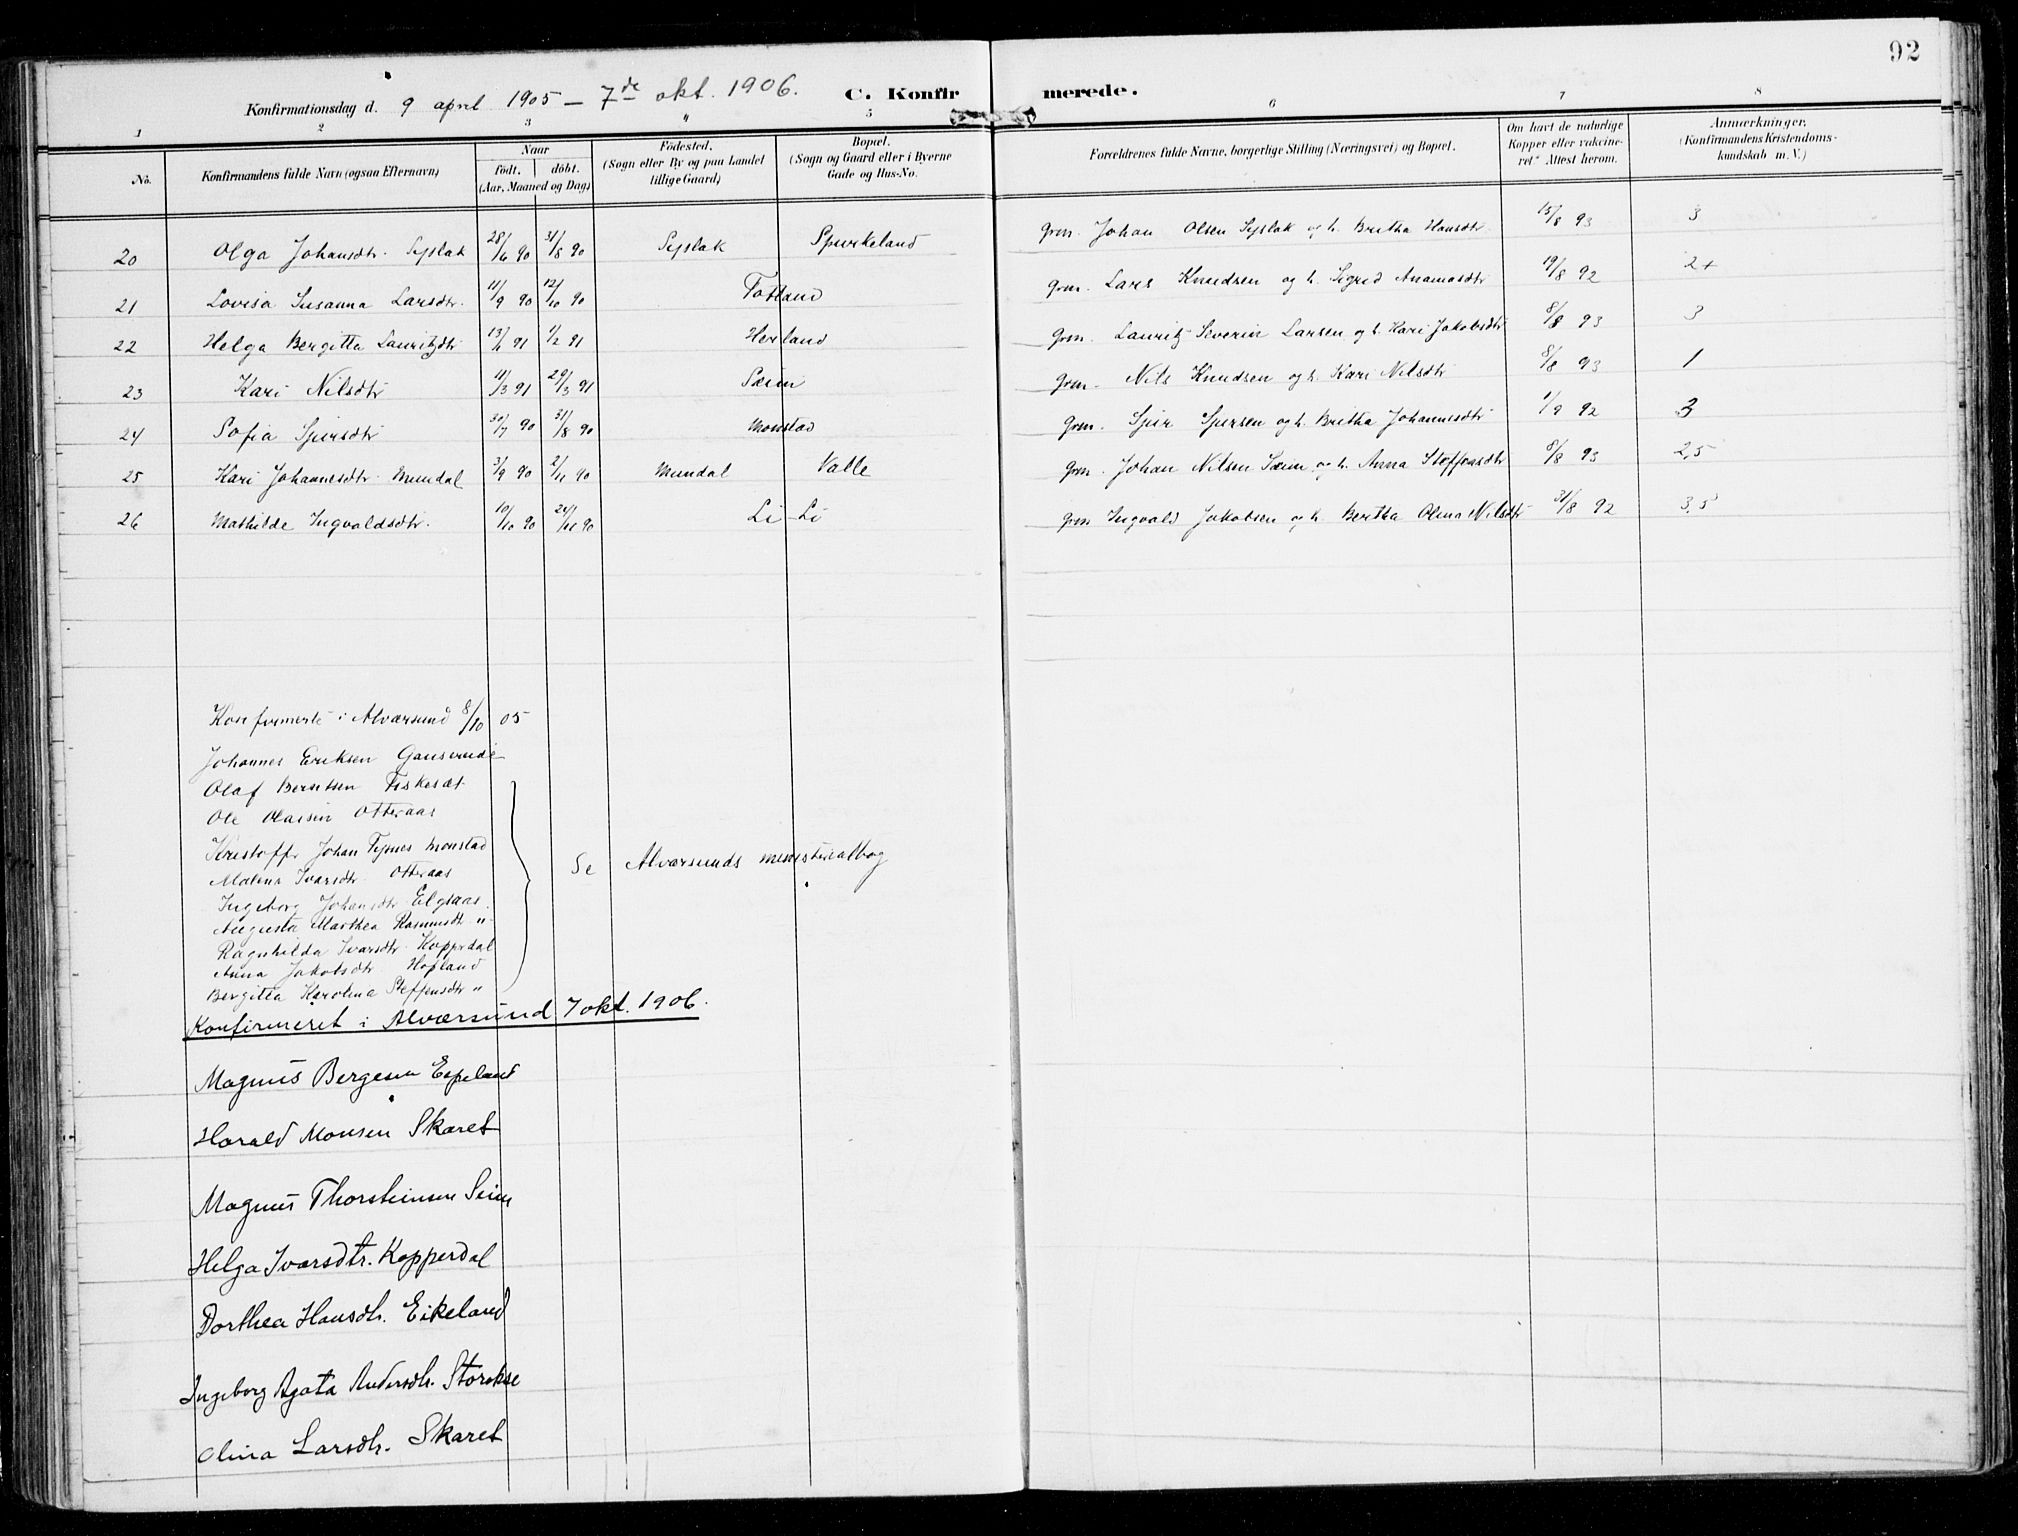 92
Konfirmationsdag d. 9 april 1905 – 7de okt. 1906. C. Konfirmerede.
1 2 3 " 5 6 7 8
No. Konfirmandens fulde Navn (ogsaa Efternavn) Naar født, døbt. (Aar, Maaned og Dag) Fødested. (Sogn eller By og paa Landet tillige Gaard) Bopæl. (Sogn og Gaard eller i Byerne Gade og Hus-No. Forældrenes fulde Navne, borgerlige Stilling (Næringsvei) og Bopæl. Om havt de naturlige Kopper eller vakcineret" Attest herom. Anmærkninger. (Konfirmandens Kristendomskundskab m. V.)
20 Olga Johansdtr. Sejslak 28/6 90 31/8 90 Sejslak Spurkeland Grm. Johan Olsen Sejslak og h. Britha Hansdtr. 15/8 93 3
21 Lovisa Susanna Larsdtr. 11/9 90 12/10 90 Totland Grm. Lars Knudsen og h. Sigrid 19/8 92 2+
22 Helga Bergitta Lauritzdtr 13/1 91 1/2 91 Herland Grm. Lauritz Severin Larsen og h. Kari Jakobsdtr 8/8 93 3
23 Kari Nilsdtr 11/3 91 29/3 91 Sæim Grm. Nils Knudsen og h. Kari Nilsdtr 8/8 93 1
24 Sofia 30/7 90 31/8 90 Monstad Grm. og h. Britha Johannesdtr 1/9 92 3
25 Kari Johannesdtr. Mundal 3/9 90 2/11 90 Mundal Valle Grm. Johan Nilsen Sæim og h. Anna Steffensdtr 8/8 93 2,5
26 Mathilde Ingvaldsdtr. 10/10 90 24/ 90 Li - Li Grm Ingvald Jakobsen og h. Bertha Olina Nilsdtr 31/8 92 3,5
Konfirmerte i Alværsund 8/10 05
Johannes Eriksen
Olaf Berntsen Fiskesæt
Ole Olaisen Otteraas
Kristoffer Johan Monstad
Malena Ivarsdtr. Otteraas
Se Alværsunds ministerialbog
Ingeborg Johansdtr. Elgsaas
Augusta Marthea Rasmusdtr "
Ragnhilda Ivarsdtr. Kopperdal
Anna Jakobsdtr. Hopland
Bergitta Karolina Steffensdtr "
Konfirmeret i Alværsund 7 okt. 1906.
Magnus Bergesen Espeland
Harald Monsen Skaret
Magnus Thorsteinsen Seim
Helga Ivarsdtr. Kopperdal
Dorthea Hansdtr. Eikeland
Ingeborg Agata Andersdtr. Storokse
Olina Larsdtr. Skaret